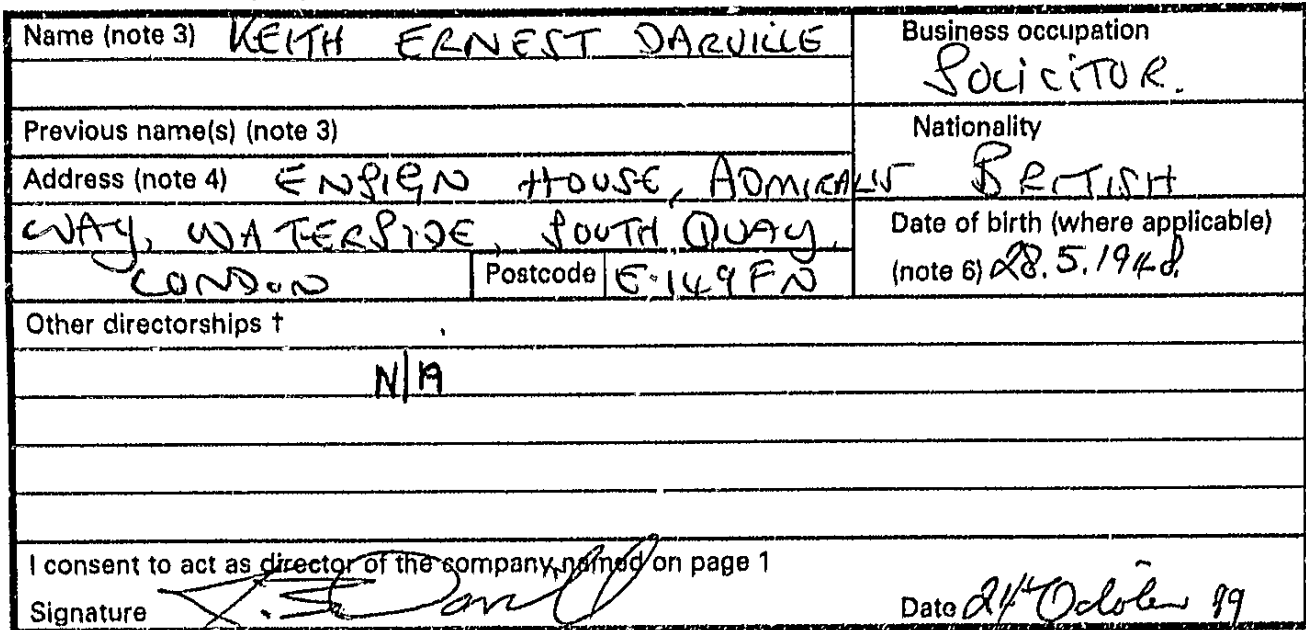 Name (note 3) KEITH ERNEST DARVILLE
Business occupation
SOLICITOR.
Previous name(s) (note 3)
Nationality
BRITISH
Address (note 4) ENSIGN HOUSE, ADMIRALS
WAY, WATERSIDE, SOUTH QUAY,
LONDON Postcode E.149FN
Date of birth (where applicable)
(note 6) 28.5.1948.
Other directorships †
N/A
I consent to act as director of the company named on page 1
Signature Date 24th October 89